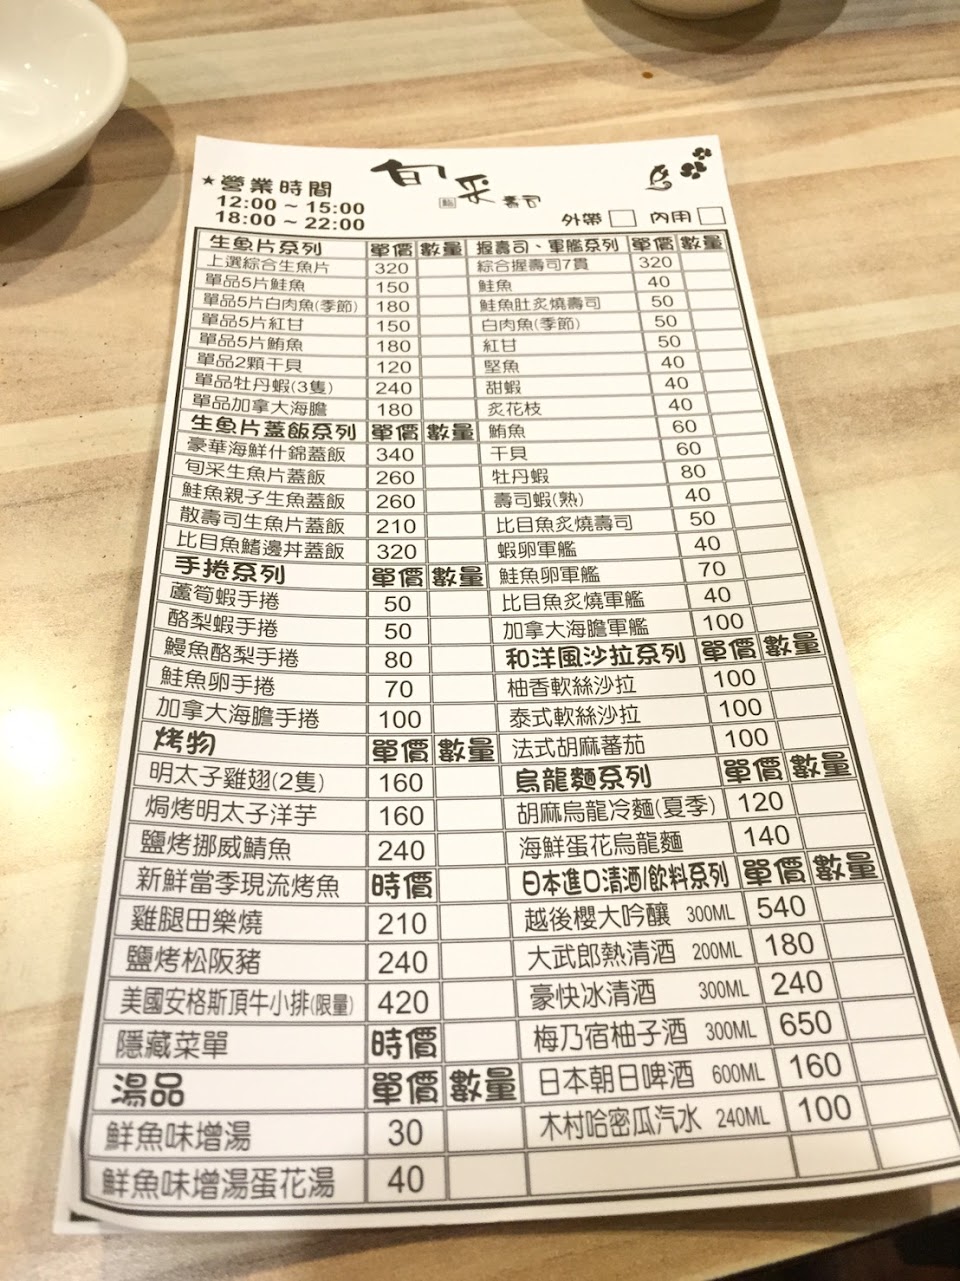 旬采 壽司
★營業時間
12:00 ~ 15:00
18:00 ~ 22:00
外帶 內用
生魚片系列 單價 數量
上選綜合生魚片 320
單品5片鮭魚 150
單品5片白肉魚(季節) 180
單品5片紅甘 150
單品5片鮪魚 180
單品2顆干貝 120
單品牡丹蝦(3隻) 240
單品加拿大海膽 180
生魚片蓋飯系列 單價 數量
豪華海鮮什錦蓋飯 340
旬采生魚片蓋飯 260
鮭魚親子生魚蓋飯 260
散壽司生魚片蓋飯 210
比目魚鰭邊丼蓋飯 320
手捲系列 單價 數量
蘆筍蝦手捲 50
酪梨蝦手捲 50
鰻魚酪梨手捲 80
鮭魚卵手捲 70
加拿大海膽手捲 100
烤物 單價 數量
明太子雞翅(2隻) 160
焗烤明太子洋芋 160
鹽烤挪威鯖魚 240
新鮮當季現流烤魚 時價
雞腿田樂燒 210
鹽烤松阪豬 240
美國安格斯頂牛小排(限量) 420
隱藏菜單 時價
湯品 單價 數量
鮮魚味增湯 30
鮮魚味增湯蛋花湯 40
握壽司、軍艦系列 單價 數量
綜合握壽司7貫 320
鮭魚 40
鮭魚肚炙燒壽司 50
白肉魚(季節) 50
紅甘 50
堅魚 40
甜蝦 40
炙花枝 40
鮪魚 60
干貝 60
牡丹蝦 80
壽司蝦(熟) 40
比目魚炙燒壽司 50
蝦卵軍艦 40
鮭魚卵軍艦 70
比目魚炙燒軍艦 40
加拿大海膽軍艦 100
和洋風沙拉系列 單價 數量
柚香軟絲沙拉 100
泰式軟絲沙拉 100
法式胡麻蕃茄 100
烏龍麵系列 單價 數量
胡麻烏龍冷麵(夏季) 120
海鮮蛋花烏龍麵 140
日本進口清酒/飲料系列 單價 數量
越後櫻大吟釀 300ML 540
大武郎熱清酒 200ML 180
豪快冰清酒 300ML 240
梅乃宿柚子酒 300ML 650
日本朝日啤酒 600ML 160
木村哈密瓜汽水 240ML 100